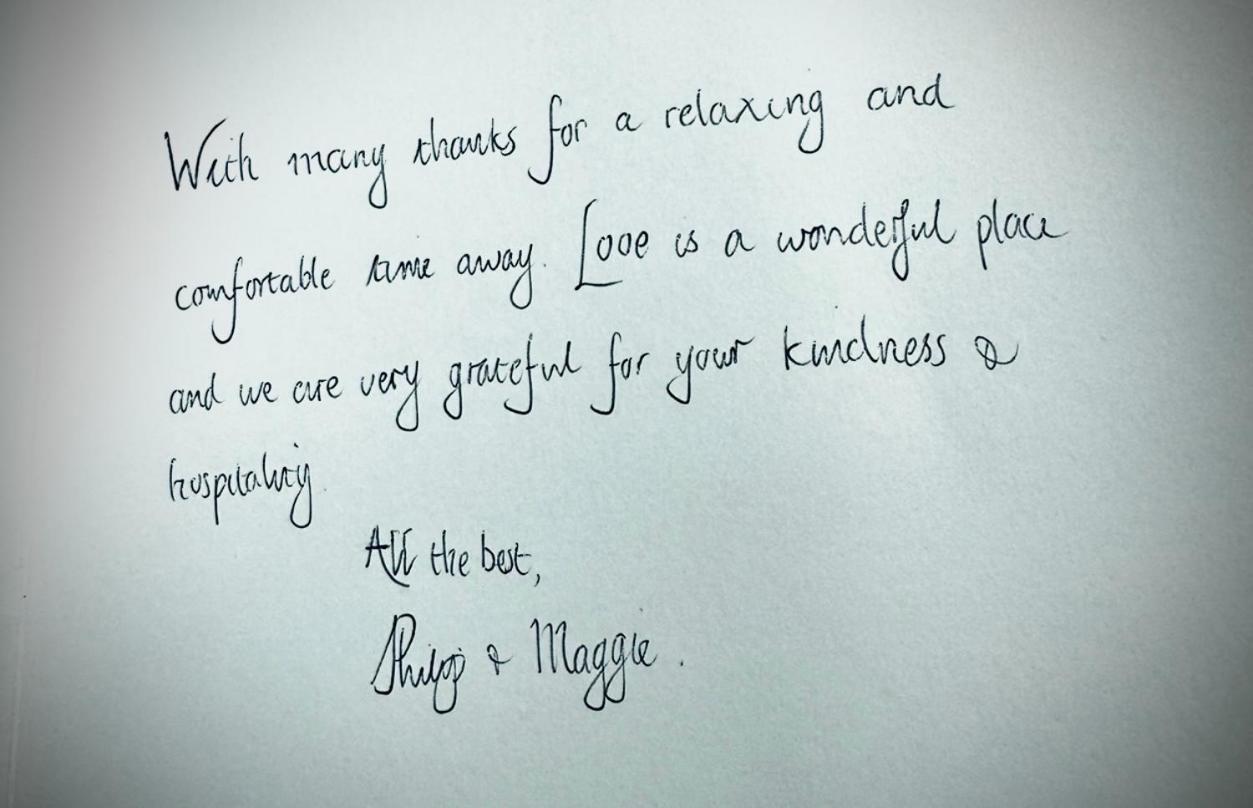 With many thanks for a relaxing and
comfortable time away. Looe is a wonderful place
and we are very grateful for your kindness &
hospitality.
All the best,
Philip & Maggie.